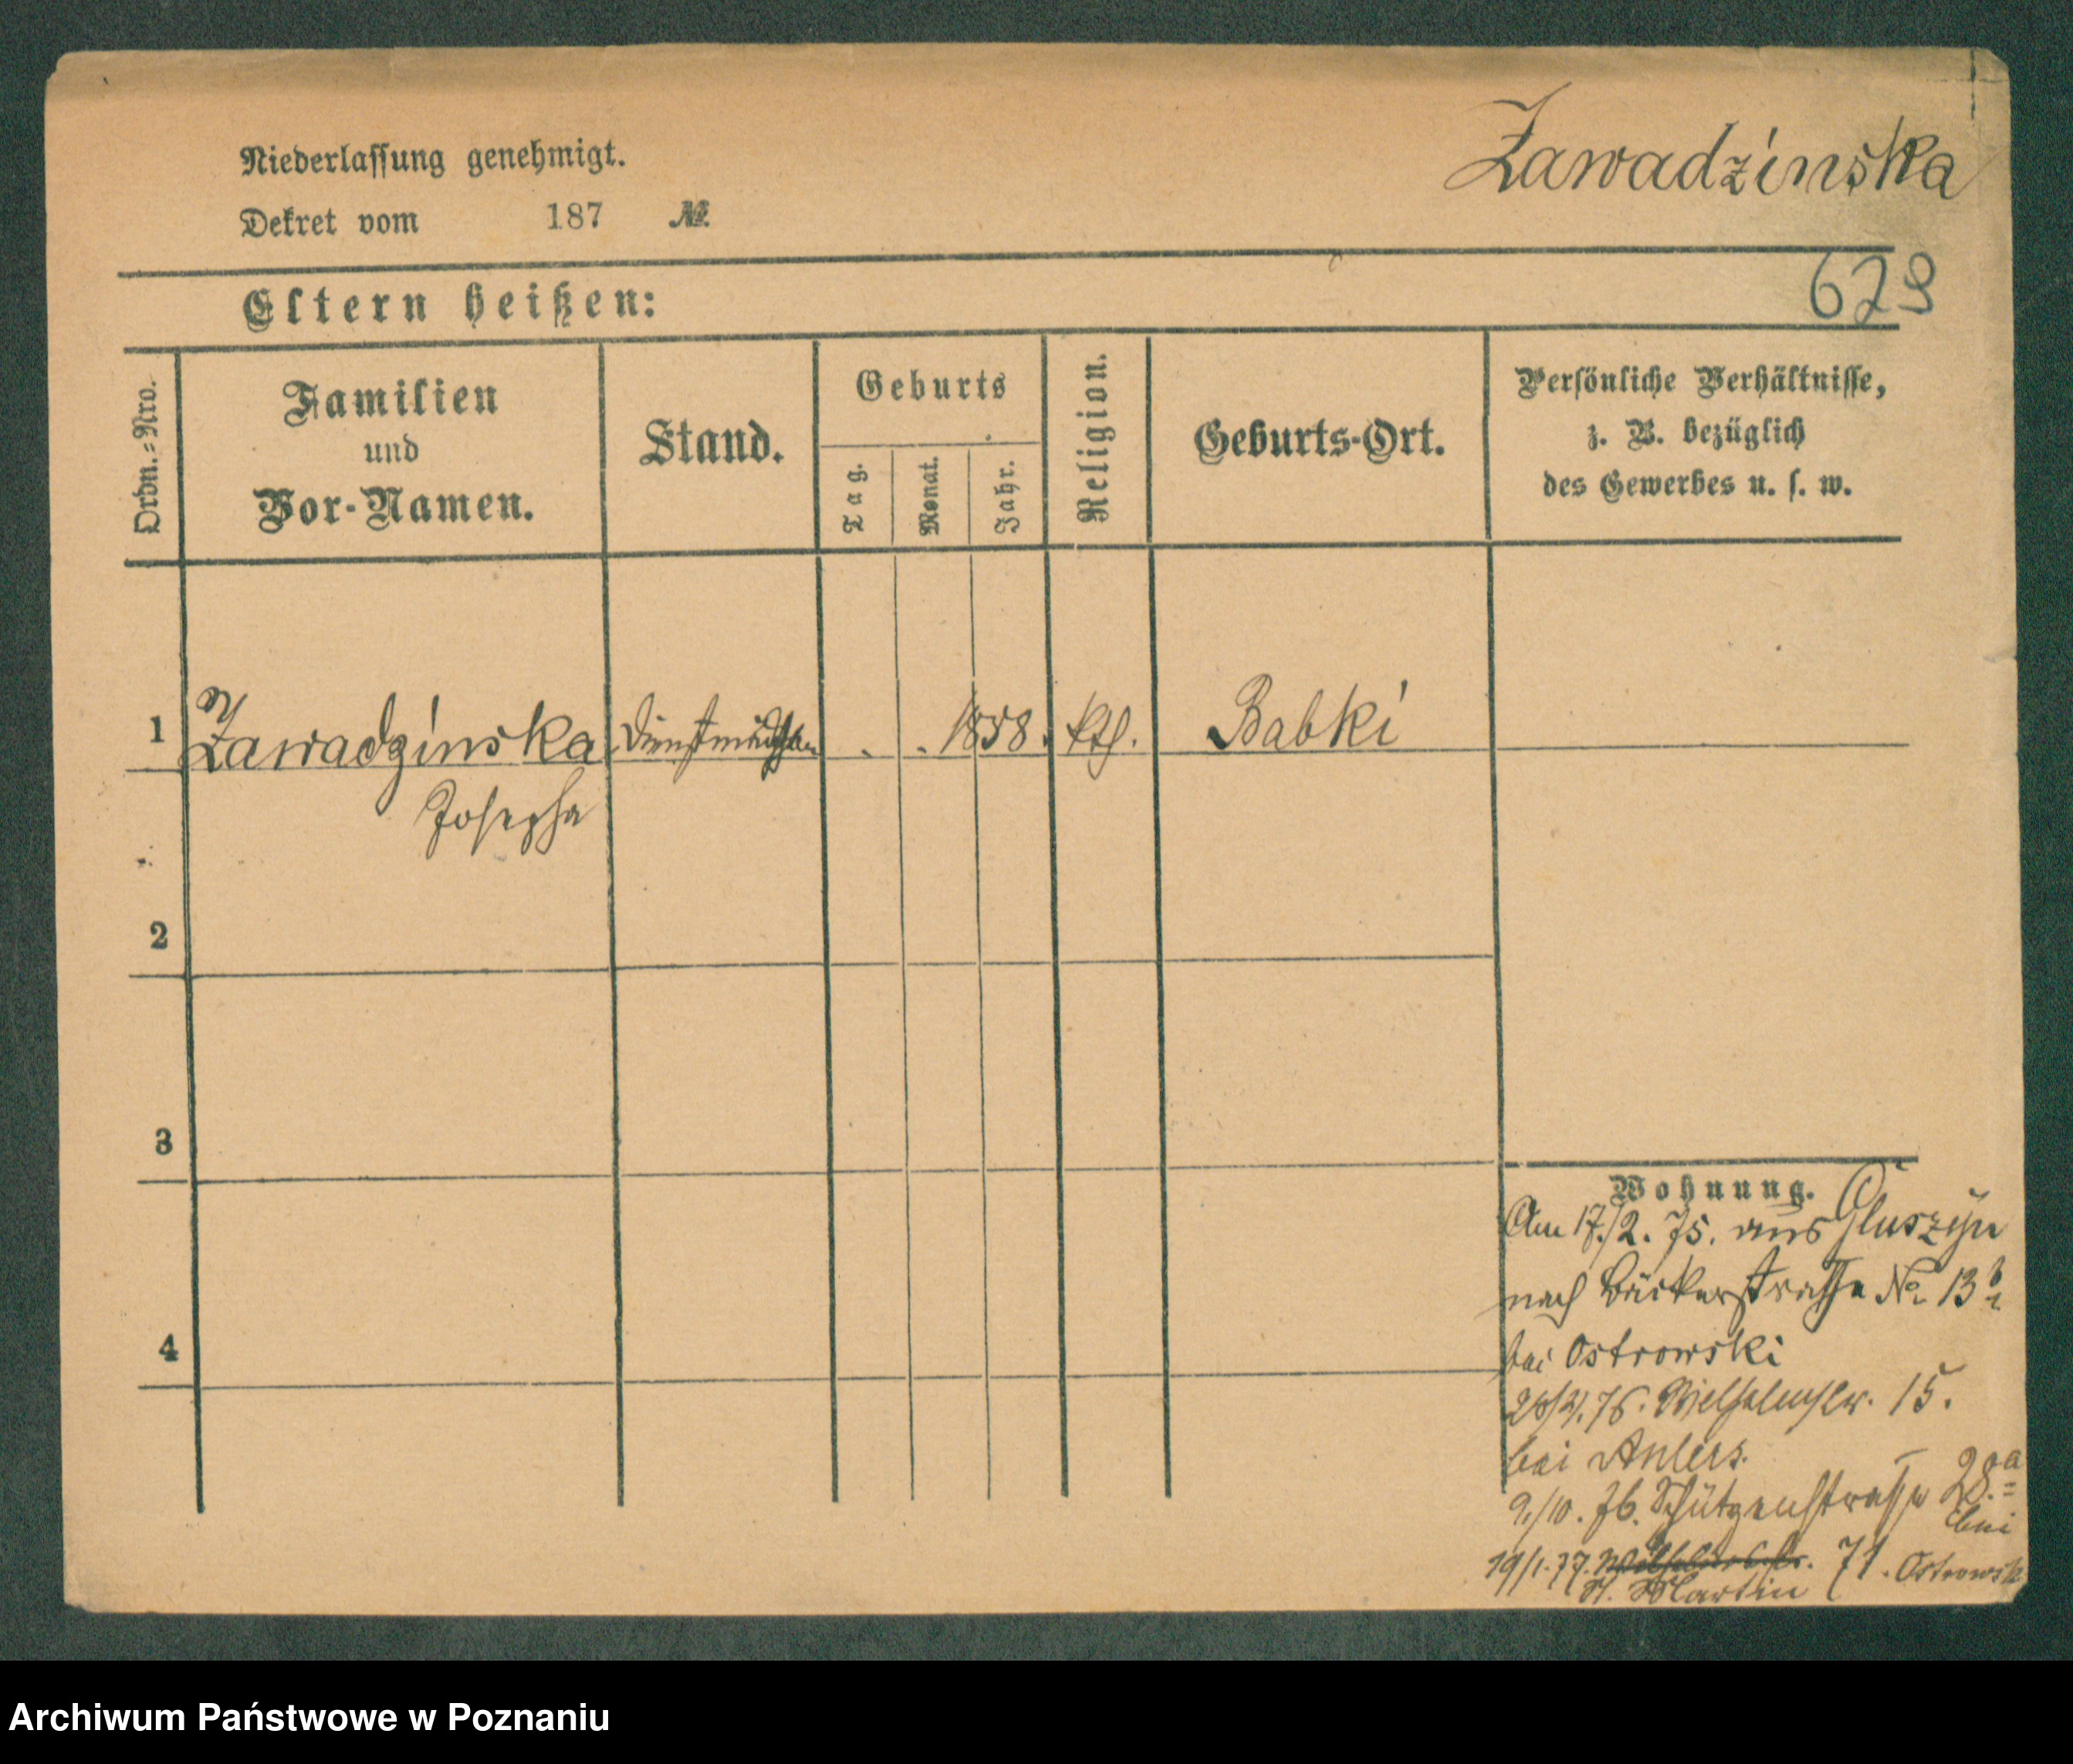 Zawadzinska
Niederlassung genehmigt.
Dekret vom 187 №
629
Eltern heißen:
Ordn.-Nro.
Familien
und
Vor-Namen.
Stand.
Geburts
Tag.
Monat.
Jahr.
Religion.
Geburts-Ort.
Persönliche Verhältnisse,
z. B. bezüglich
des Gewerbes u. s. w.
1 Zawadzinska Dienstmädchen . . 1858. kth. Babki
Josepha
2
3
4
Wohnung.
Am 17./2. 75. aus Gluszyn
nach Bäckerstrasse No 13 b
bei Ostrowski
76. Wilhelmstr. 15.
bei
9./10. 76. Schützenstrasse 28.a
bei
19/1. 77. 71. Ostrowski
St. Martin
Archiwum Państwowe w Poznaniu